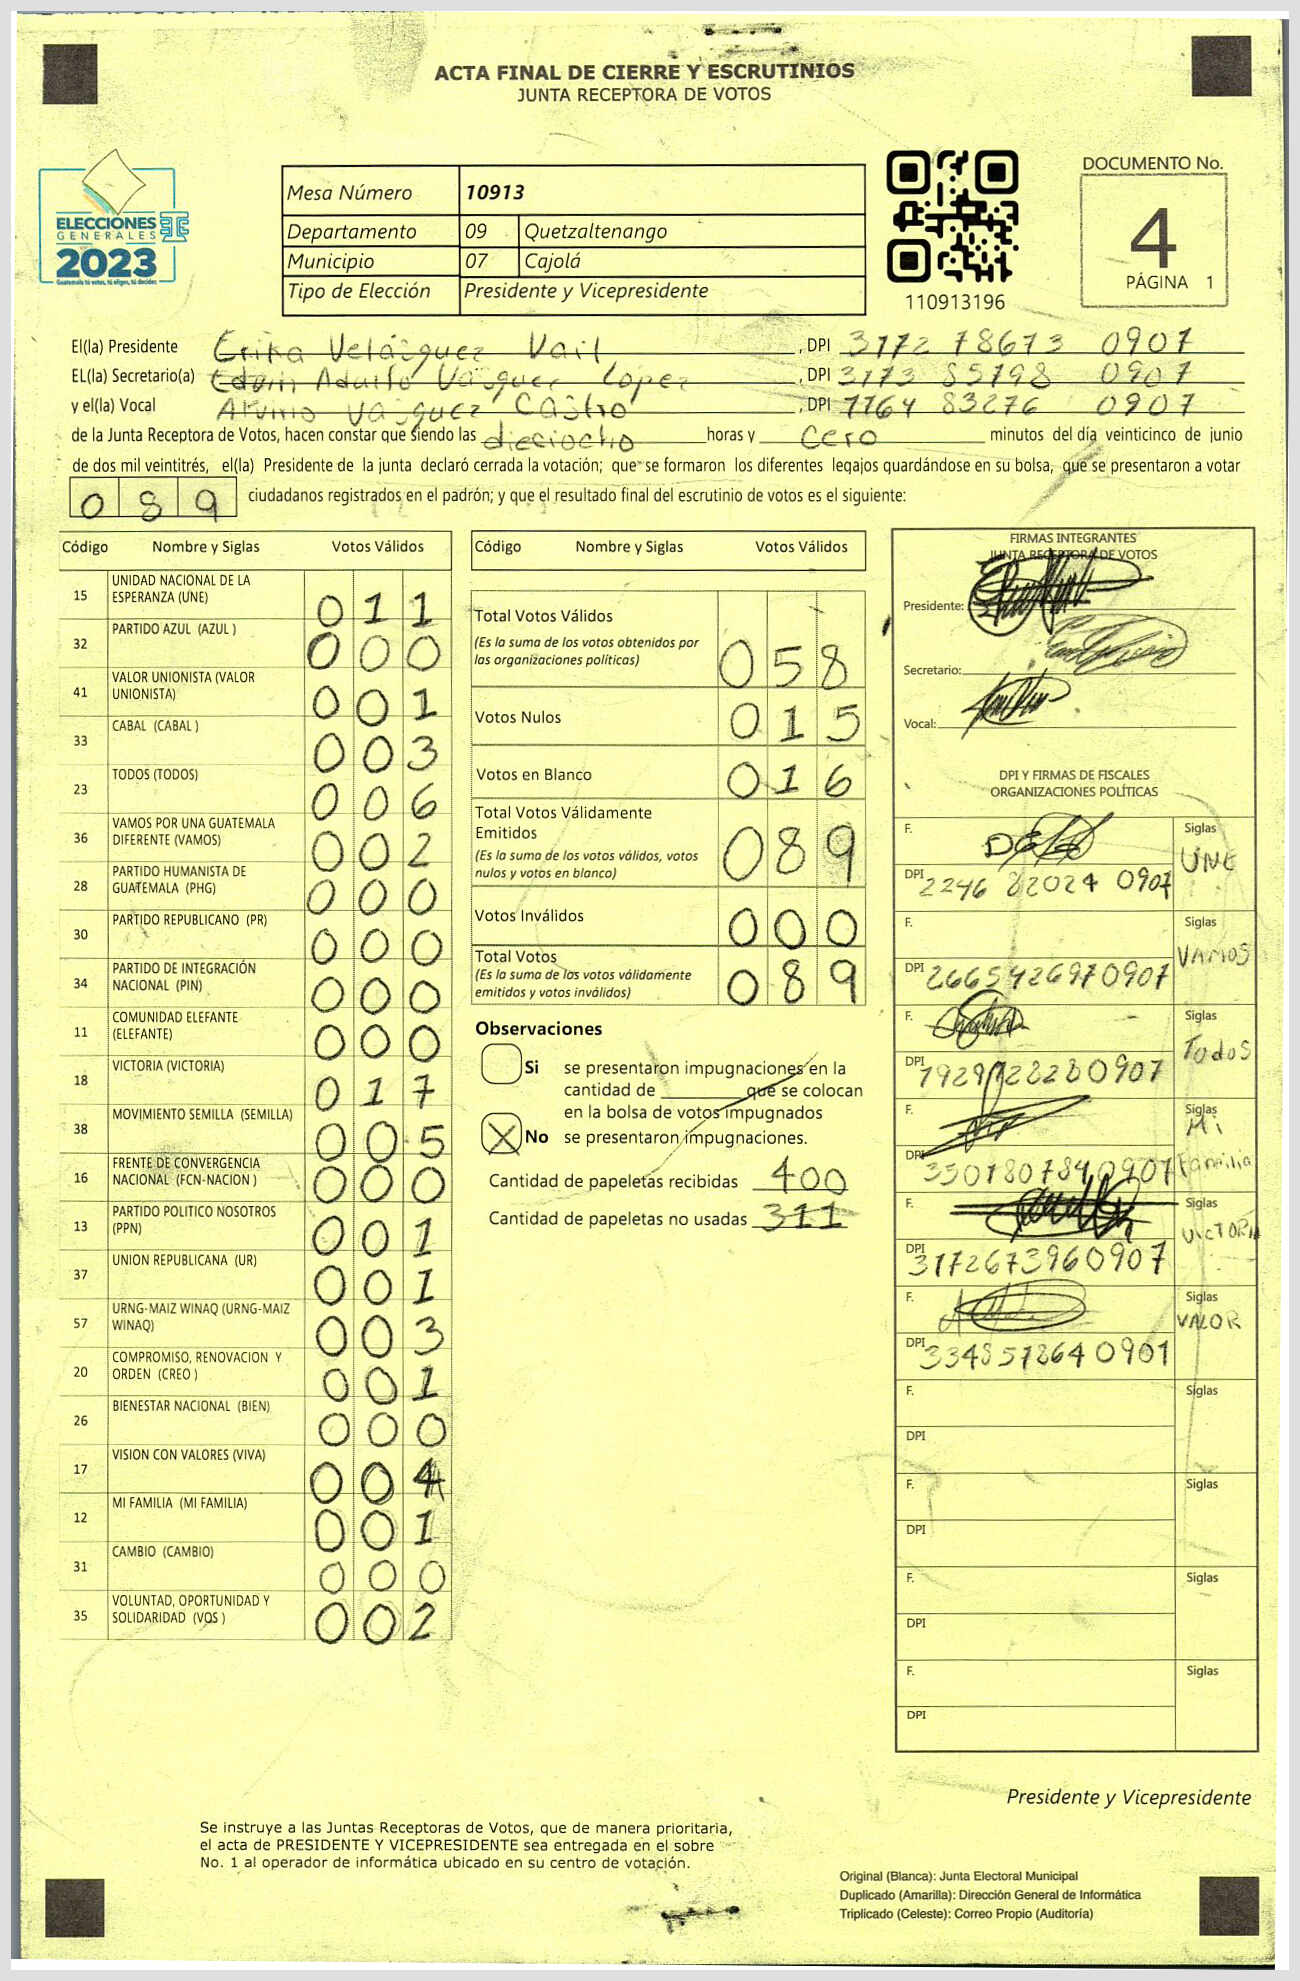 ACTA FINAL DE CIERRE Y ESCRUTINIOS
JUNTA RECEPTORA DE VOTOS
ELECCIONES
GENERALES
2023
Guatemala tú votas, tú eliges, tú decides
Mesa Número 10913
Departamento 09 Quetzaltenango
Municipio 07 Cajolá
Tipo de Elección Presidente y Vicepresidente
110913196
DOCUMENTO No.
4
PÁGINA 1
El(la) Presidente Erika Velásquez Vail, DPI 3172 78673 0907
EL(la) Secretario(a) Edvin Adulfo Vásquez López, DPI 3173 85798 0907
y el(la) Vocal Vásquez Castro, DPI 83276 0907
de la Junta Receptora de Votos, hacen constar que siendo las dieciocho horas y cero minutos del día veinticinco de junio
de dos mil veintitrés, el(la) Presidente de la junta declaró cerrada la votación; que se formaron los diferentes legajos guardándose en su bolsa, que se presentaron a votar
089 ciudadanos registrados en el padrón; y que el resultado final del escrutinio de votos es el siguiente:
Código Nombre y Siglas Votos Válidos
15 UNIDAD NACIONAL DE LA ESPERANZA (UNE) 011
32 PARTIDO AZUL (AZUL ) 000
41 VALOR UNIONISTA (VALOR UNIONISTA) 001
33 CABAL (CABAL ) 003
23 TODOS (TODOS) 006
36 VAMOS POR UNA GUATEMALA DIFERENTE (VAMOS) 002
28 PARTIDO HUMANISTA DE GUATEMALA (PHG) 000
30 PARTIDO REPUBLICANO (PR) 000
34 PARTIDO DE INTEGRACIÓN NACIONAL (PIN) 000
11 COMUNIDAD ELEFANTE (ELEFANTE) 000
18 VICTORIA (VICTORIA) 017
38 MOVIMIENTO SEMILLA (SEMILLA) 005
16 FRENTE DE CONVERGENCIA NACIONAL (FCN-NACION ) 000
13 PARTIDO POLITICO NOSOTROS (PPN) 001
37 UNION REPUBLICANA (UR) 001
57 URNG-MAIZ WINAQ (URNG-MAIZ WINAQ) 003
20 COMPROMISO, RENOVACION Y ORDEN (CREO ) 001
26 BIENESTAR NACIONAL (BIEN) 000
17 VISION CON VALORES (VIVA) 004
12 MI FAMILIA (MI FAMILIA) 001
31 CAMBIO (CAMBIO) 000
35 VOLUNTAD, OPORTUNIDAD Y SOLIDARIDAD (VOS ) 002
Código Nombre y Siglas Votos Válidos
Total Votos Válidos 058
(Es la suma de los votos obtenidos por
las organizaciones políticas)
Votos Nulos 015
Votos en Blanco 016
Total Votos Válidamente
Emitidos 089
(Es la suma de los votos válidos, votos
nulos y votos en blanco)
Votos Inválidos 000
Total Votos 089
(Es la suma de los votos válidamente
emitidos y votos inválidos)
Observaciones
Si se presentaron impugnaciones en la
cantidad de que se colocan
en la bolsa de votos impugnados
X No se presentaron impugnaciones.
Cantidad de papeletas recibidas 400
Cantidad de papeletas no usadas 311
FIRMAS INTEGRANTES
JUNTA RECEPTORA DE VOTOS
Presidente:
Secretario:
Vocal:
DPI Y FIRMAS DE FISCALES
ORGANIZACIONES POLÍTICAS
F. Siglas UNE
DPI 2246 82024 0907
F. Siglas VAMOS
DPI 2665426970907
F. Siglas Todos
DPI 0907
F. Siglas Mi Familia
DPI 3501807840907
F. Siglas VICTORIA
DPI 3172673960907
F. Siglas VALOR
DPI 3348578640901
F. Siglas
DPI
F. Siglas
DPI
F. Siglas
DPI
F. Siglas
DPI
Presidente y Vicepresidente
Se instruye a las Juntas Receptoras de Votos, que de manera prioritaria,
el acta de PRESIDENTE Y VICEPRESIDENTE sea entregada en el sobre
No. 1 al operador de informática ubicado en su centro de votación.
Original (Blanca): Junta Electoral Municipal
Duplicado (Amarilla): Dirección General de Informática
Triplicado (Celeste): Correo Propio (Auditoría)